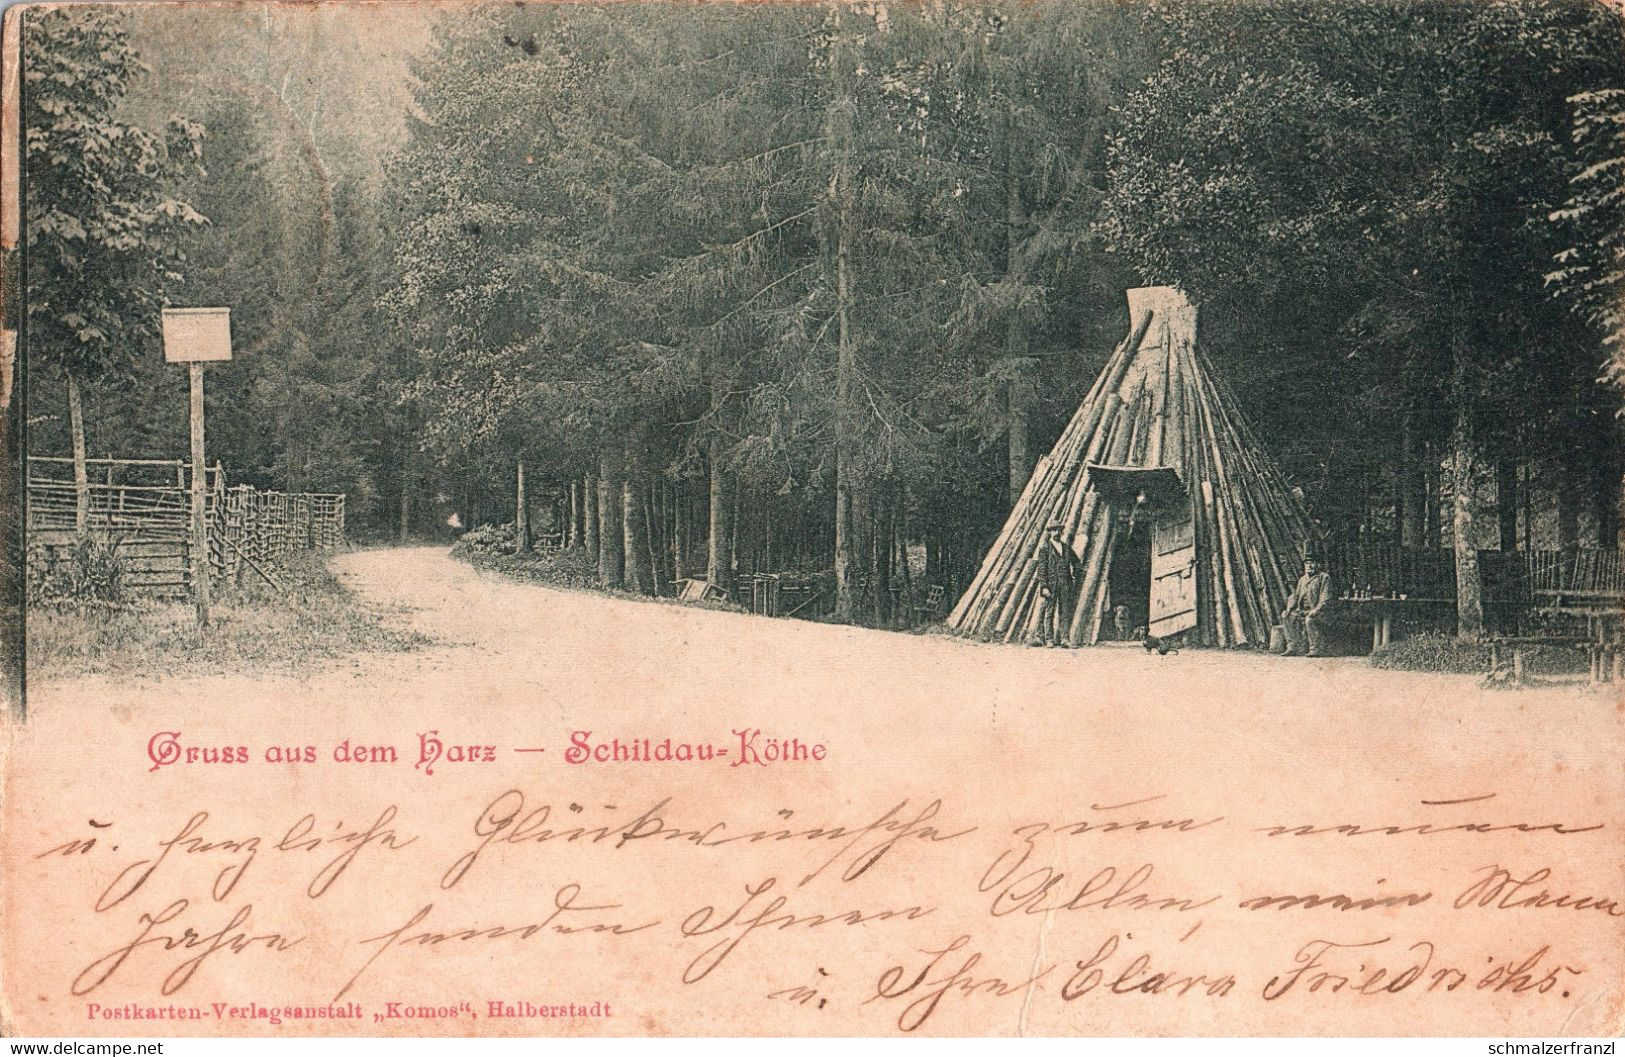 Gruss aus dem Harz — Schildau-Köthe
u. herzliche Glückwünsche zum neuen
Jahre senden Ihnen Allen, mein Mann
u. Ihre Clara Friedrichs.
Postkarten-Verlagsanstalt „Komos“, Halberstadt
www.delcampe.net
schmalzerfranzl